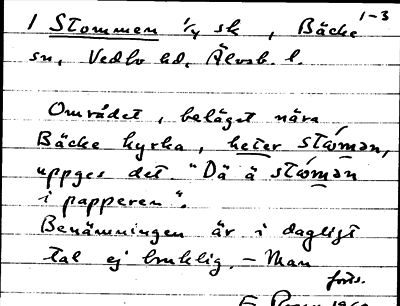 1-3
1 Stommen 1/4 sk, Bäcke
sn, Vedbo hd, Älvsb. l.
Området, beläget nära
Bäcke kyrka, heter ståmən,
uppges det. "Dä ä ståmən
i papperen".
Benämningen är i dagligt
tal ej bruklig. – Man
forts.